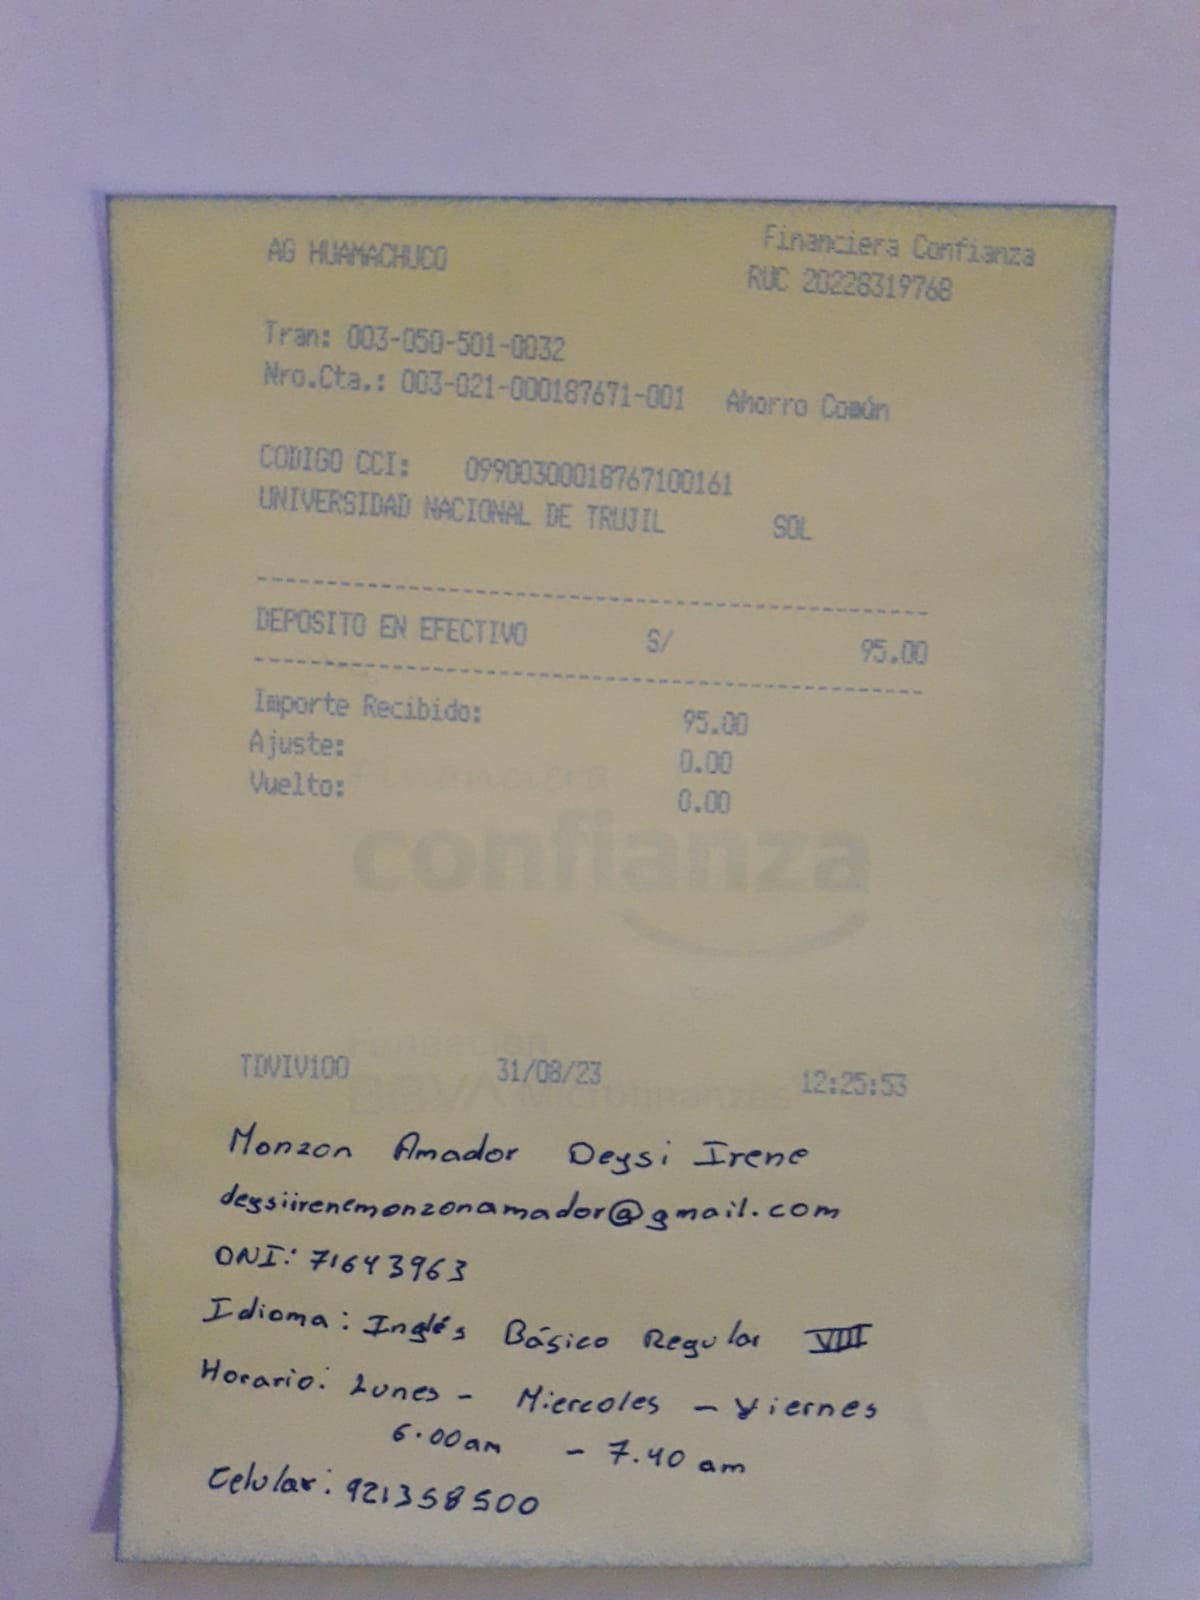 AG HUAMACHUCO Financiera Confianza
RUC 20228319768
Tran: 003-050-501-0032
Nro.Cta.: 003-021-000187671-001 Ahorro Común
CODIGO CCI: 09900300018767100161
UNIVERSIDAD NACIONAL DE TRUJIL SOL
DEPOSITO EN EFECTIVO S/ 95.00
Importe Recibido: 95.00
Ajuste: 0.00
Vuelto: 0.00
Financiera
confianza
Fundación
BBVA Microfinanzas
TDVIV100 31/08/23 12:25:53
Monzon Amador Deysi Irene
deysiirenemonzonamador@gmail.com
DNI: 71643963
Idioma: Inglés Básico Regular VIII
Horario: Lunes - Miercoles - Viernes
6.00am - 7.40 am
Celular: 921358500